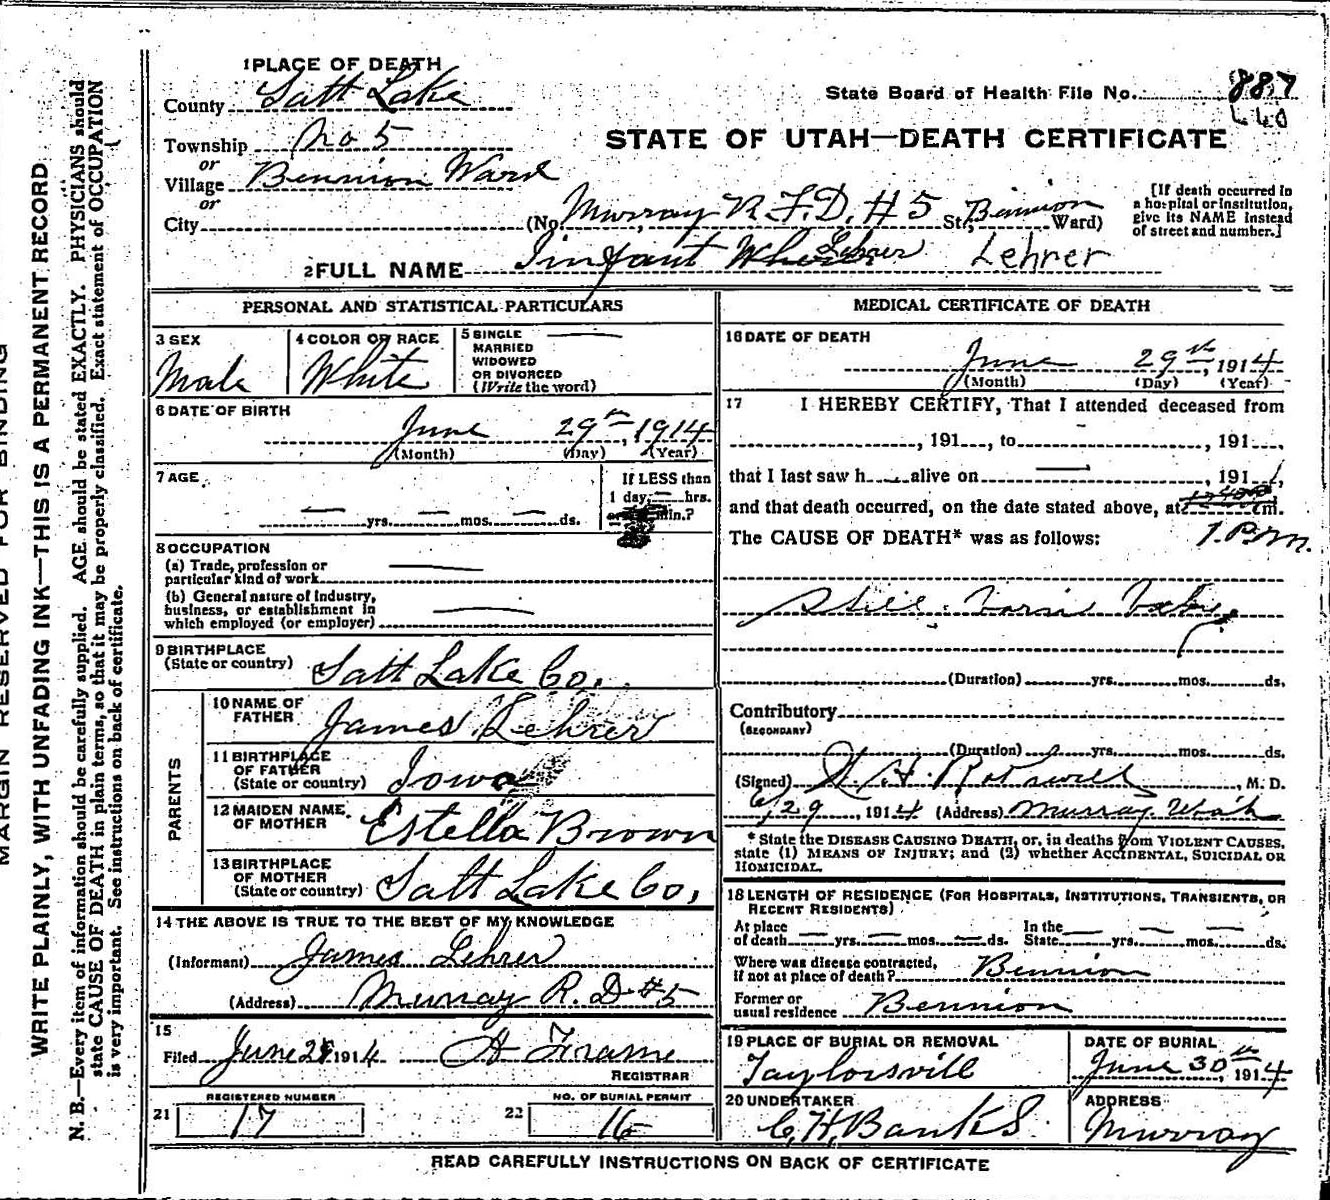 1 PLACE OF DEATH
County Salt Lake
State Board of Health File No. 887
440
Township No 5
STATE OF UTAH—DEATH CERTIFICATE
or
Village Bennion Ward
or
City (No. Murray R.F.D. #5 St., Bennion Ward)
[If death occurred in
a hospital or institution,
give its NAME instead
of street and number.]
2 FULL NAME Infant Lehrer Lehrer
PERSONAL AND STATISTICAL PARTICULARS
3 SEX
Male
4 COLOR OR RACE
White
5 SINGLE
MARRIED
WIDOWED
OR DIVORCED
(Write the word)
6 DATE OF BIRTH
June 29th, 1914
(Month) (Day) (Year)
7 AGE
yrs. mos. ds.
If LESS than
1 day, hrs.
min.?
8 OCCUPATION
(a) Trade, profession or
particular kind of work
(b) General nature of industry,
business, or establishment in
which employed (or employer)
9 BIRTHPLACE
(State or country) Salt Lake Co.
PARENTS
10 NAME OF
FATHER James Lehrer
11 BIRTHPLACE
OF FATHER
(State or country) Iowa
12 MAIDEN NAME
OF MOTHER Estella Brown
13 BIRTHPLACE
OF MOTHER
(State or country) Salt Lake Co,
14 THE ABOVE IS TRUE TO THE BEST OF MY KNOWLEDGE
(Informant) James Lehrer
(Address) Murray R. D #5
15
Filed June 29 1914 A Frame
REGISTRAR
REGISTERED NUMBER
21 17
NO. OF BURIAL PERMIT
22 16
MEDICAL CERTIFICATE OF DEATH
16 DATE OF DEATH
June 29th, 1914
(Month) (Day) (Year)
17 I HEREBY CERTIFY, That I attended deceased from
, 191 , to , 191 ,
that I last saw h alive on , 191 ,
and that death occurred, on the date stated above, at m.
The CAUSE OF DEATH* was as follows: 1. P.M.
Still borne baby.
(Duration) yrs. mos. ds.
Contributory
(SECONDARY)
(Duration) yrs. mos. ds.
(Signed) H. H. , M. D.
6/29, 1914 (Address) Murray Utah
* State the DISEASE CAUSING DEATH, or, in deaths from VIOLENT CAUSES,
state (1) MEANS OF INJURY; and (2) whether ACCIDENTAL, SUICIDAL OR
HOMICIDAL.
18 LENGTH OF RESIDENCE (FOR HOSPITALS, INSTITUTIONS, TRANSIENTS, OR
RECENT RESIDENTS)
At place In the
of death yrs. mos. ds. State yrs. mos. ds.
Where was disease contracted,
if not at place of death? Bennion
Former or
usual residence Bennion
19 PLACE OF BURIAL OR REMOVAL
Taylorsvill
DATE OF BURIAL
June 30th, 1914
20 UNDERTAKER
C, H, Banks
ADDRESS
Murray
READ CAREFULLY INSTRUCTIONS ON BACK OF CERTIFICATE
MARGIN RESERVED FOR BINDING
WRITE PLAINLY, WITH UNFADING INK—THIS IS A PERMANENT RECORD
N. B.—Every item of information should be carefully supplied. AGE should be stated EXACTLY. PHYSICIANS should
state CAUSE OF DEATH in plain terms, so that it may be properly classified. Exact statement of OCCUPATION
is very important. See instructions on back of certificate.